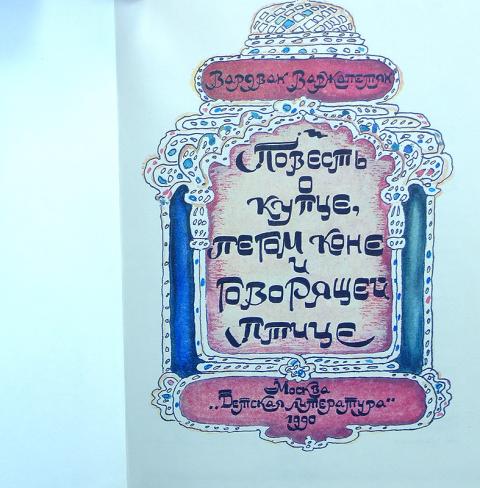 Вардван Варжапетян
Повесть
о
купце,
пегом коне
и
говорящей
птице
Москва
„Детская литература“
1990